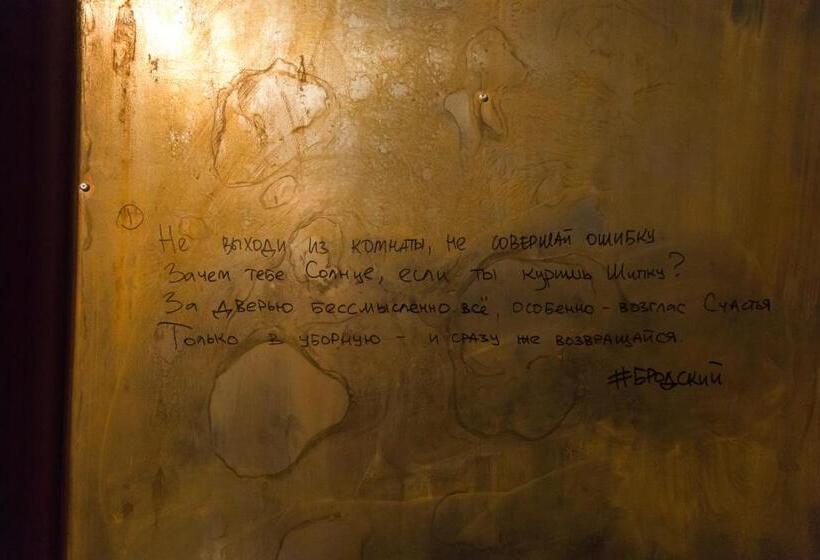 Не выходи из комнаты, не совершай ошибку
Зачем тебе Солнце, если ты куришь Шипку?
За дверью бессмысленно всё, особенно - возглас Счастья
Только в уборную - и сразу же возвращайся.
#БРОДСКИЙ